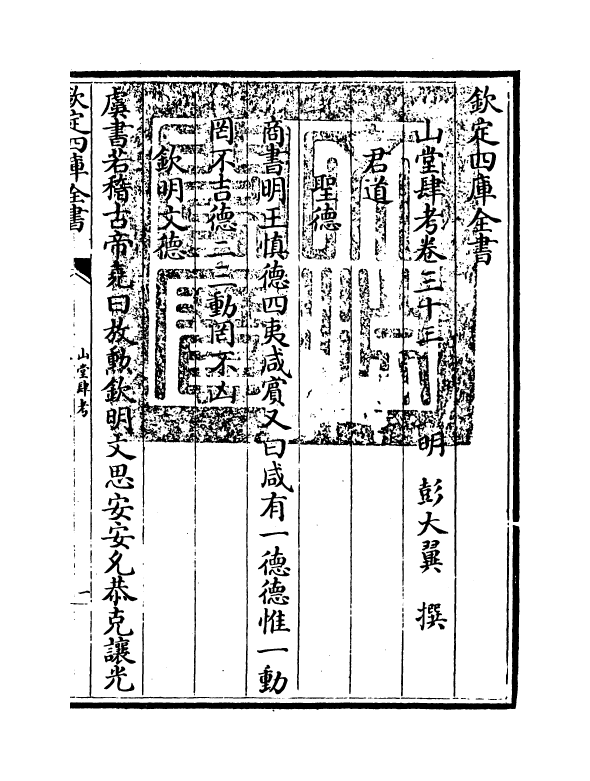 欽定四庫全書
山堂肆考卷三十三 明 彭大翼 撰
君道
聖德
商書明王慎德四夷咸賓又曰咸有一德德惟一動
罔不吉德二三動罔不凶
欽明文德
虞書若稽古帝堯曰放勲欽明文思安安允恭克讓光
欽定四庫全書
山堂肆考
一